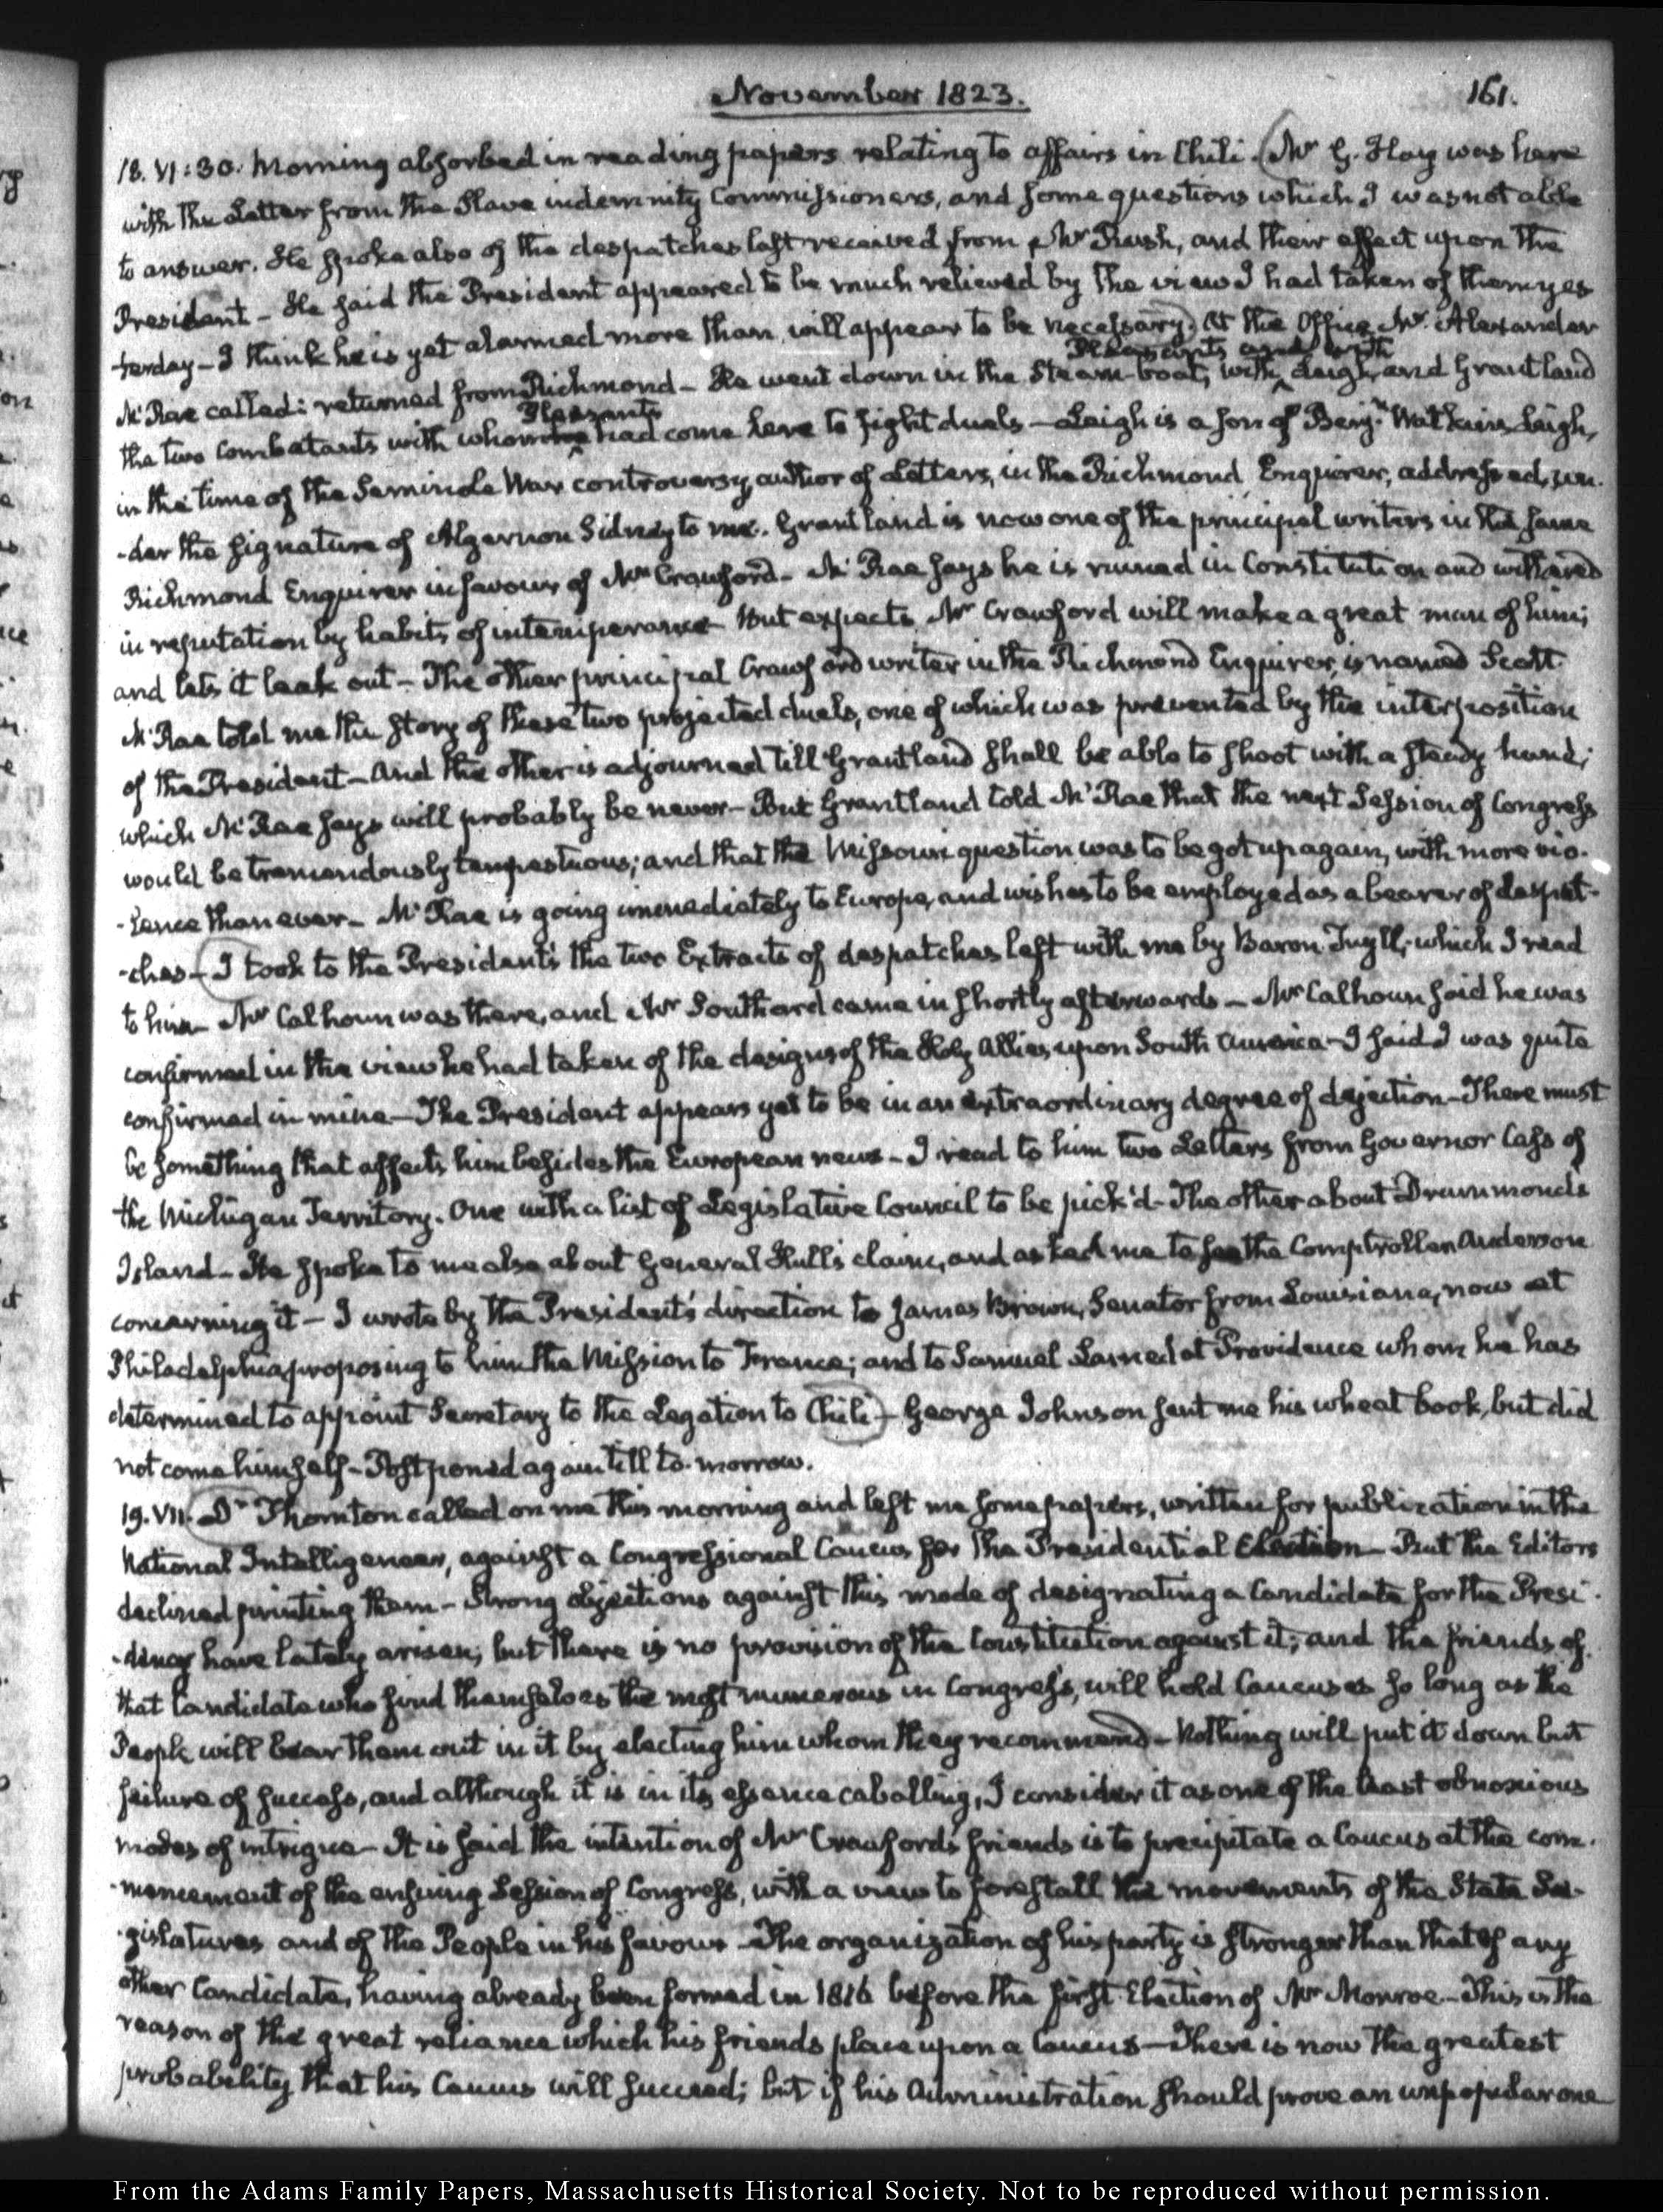 November 1823.
161.
18. VI:30. Morning absorbed in reading papers relating to affairs in Chili. Mr G. Hay was here
with the Letter from the Slave indemnity Commissioners, and some questions which I was not able
to answer. He spoke also of the despatches last received from Mr Rush, and their effect upon the
President — He said the President appeared to be much relieved by the view I had taken of them yes
-terday — I think he is yet alarmed more than will appear to be necessary. At the Office Mr. Alexander
Pleasants and with
McRae called: returned from Richmond — He went down in the Steam-boat, with Leigh, and Grantland
Pleasants
the two Combatants with whom he had come here to fight duels — Leigh is a son of Benjn. Watkins Leigh,
in the time of the Seminole War controversy, author of Letters, in the Richmond Enquirer, addressed, un-
-der the signature of Algernon Sidney to me. Grantland is now one of the principal writers in the same
Richmond Enquirer in favour of Mr Crawford — McRae says he is ruined in Constitution and withered
in reputation by habits of intemperance But expects Mr Crawford will make a great man of him;
and lets it leak out — The other principal Crawford writer in the Richmond Enquirer, is named Scott.
McRae told me the story of these two projected duels, one of which was prevented by the interposition
of the President — And the other is adjourned till Grantland shall be able to shoot with a steady hand;
which McRae says will probably be never — But Grantland told McRae that the next Session of Congress
would be tremendously tempestuous; and that the Missouri question was to be got up again, with more vio-
-lence than ever — McRae is going immediately to Europe, and wishes to be employed as a bearer of despat-
-ches — I took to the President's the two Extracts of despatches left with me by Baron Tuyll, which I read
to him — Mr Calhoun was there, and Mr Southard came in shortly afterwards — Mr Calhoun said he was
confirmed in the view he had taken of the designs of the Holy Allies, upon South America — I said I was quite
confirmed in mine — The President appears yet to be in an extraordinary degree of dejection — There must
be something that affects him besides the European news — I read to him two Letters from Governor Cass of
the Michigan Territory. One with a list of Legislative Council to be pick'd — The other about Drummond's
Island — He spoke to me also about General Hull's claim, and asked me to see the Comptroller Anderson
concerning it — I wrote by the President's direction to James Brown, Senator from Louisiana, now at
Philadelphia, proposing to him the Mission to France; and to Samuel Larned at Providence whom he has
determined to appoint Secretary to the Legation to Chili — George Johnson sent me his wheat book, but did
not come himself — Postponed again till to-morrow.
19. VII. Dr Thornton called on me this morning and left me some papers, written for publication in the
National Intelligencer, against a Congressional Caucus for the Presidential Election — But the Editors
declined printing them — Strong objections against this mode of designating a Candidate for the Presi-
-dency have lately arisen; but there is no provision of the Constitution against it; and the friends of
that Candidate who find themselves the most numerous in Congress, will hold Caucuses so long as the
People will bear them out in it by electing him whom they recommend — Nothing will put it down but
failure of success, and although it is in its essence caballing, I consider it as one of the least obnoxious
modes of intrigue — It is said the intention of Mr Crawford's friends is to precipitate a Caucus at the com-
-mencement of the ensuing Session of Congress, with a view to forestall the movements of the State Le-
-gislatures and of the People in his favour — The organization of his party is stronger than that of any
other Candidate, having already been formed in 1816 before the first Election of Mr Monroe — This is the
reason of the great reliance which his friends place upon a Caucus — There is now the greatest
probability that his Caucus will succeed; but if his Administration should prove an unpopular one
From the Adams Family Papers, Massachusetts Historical Society. Not to be reproduced without permission.